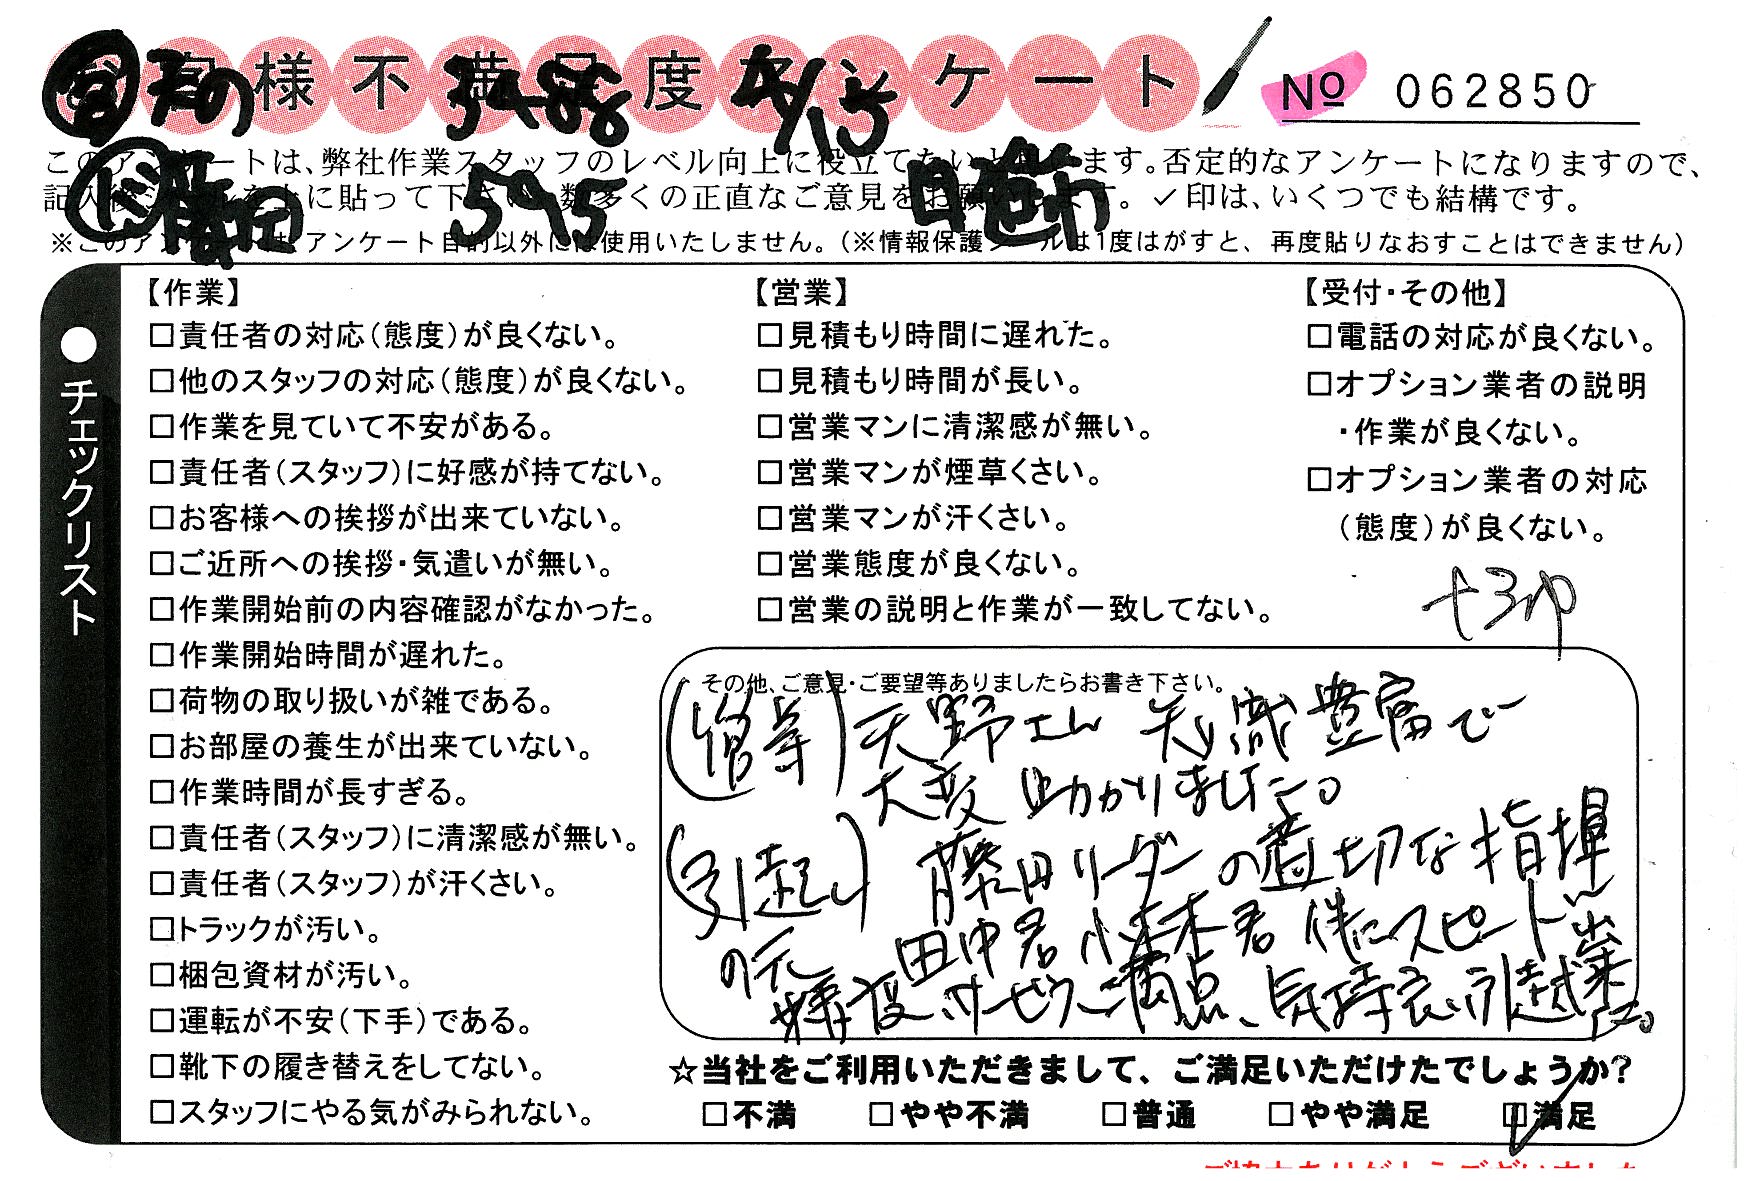 お客様不満足度アンケート
№ 062850
3488
4/15
このアンケートは、弊社作業スタッフのレベル向上に役立てたいと思います。否定的なアンケートになりますので、
記入後シールを上に貼って下さい。数多くの正直なご意見をお願いします。✓印は、いくつでも結構です。
595
※このアンケートは、アンケート目的以外には使用いたしません。（※情報保護シールは1度はがすと、再度貼りなおすことはできません）
●チェックリスト
【作業】
□責任者の対応（態度）が良くない。
□他のスタッフの対応（態度）が良くない。
□作業を見ていて不安がある。
□責任者（スタッフ）に好感が持てない。
□お客様への挨拶が出来ていない。
□ご近所への挨拶・気遣いが無い。
□作業開始前の内容確認がなかった。
□作業開始時間が遅れた。
□荷物の取り扱いが雑である。
□お部屋の養生が出来ていない。
□作業時間が長すぎる。
□責任者（スタッフ）に清潔感が無い。
□責任者（スタッフ）が汗くさい。
□トラックが汚い。
□梱包資材が汚い。
□運転が不安（下手）である。
□靴下の履き替えをしてない。
□スタッフにやる気がみられない。
【営業】
□見積もり時間に遅れた。
□見積もり時間が長い。
□営業マンに清潔感が無い。
□営業マンが煙草くさい。
□営業マンが汗くさい。
□営業態度が良くない。
□営業の説明と作業が一致してない。
【受付・その他】
□電話の対応が良くない。
□オプション業者の説明
・作業が良くない。
□オプション業者の対応
（態度）が良くない。
その他、ご意見・ご要望等ありましたらお書き下さい。
天野さん 知識豊富で
大変助かりました。
（引越し） 藤田リーダーの適切な指揮
の元 田中君 小森木君 供にスピード
サービス満点、気持良い引越作業
☆当社をご利用いただきまして、ご満足いただけたでしょうか？
□不満 □やや不満 □普通 □やや満足 □満足
ご協力ありがとうございました